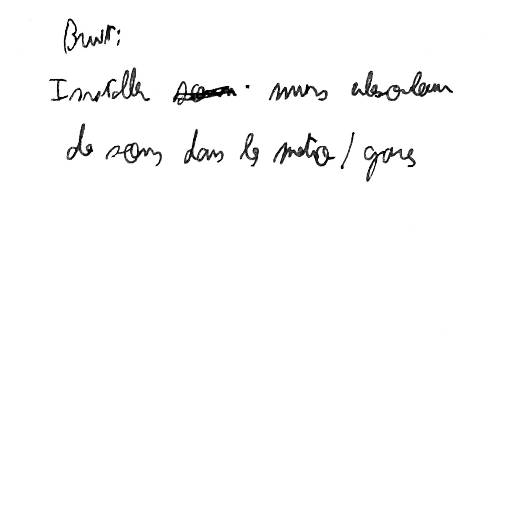 Bruit:
Installer murs absorbeurs
de sons dans le métro / gares